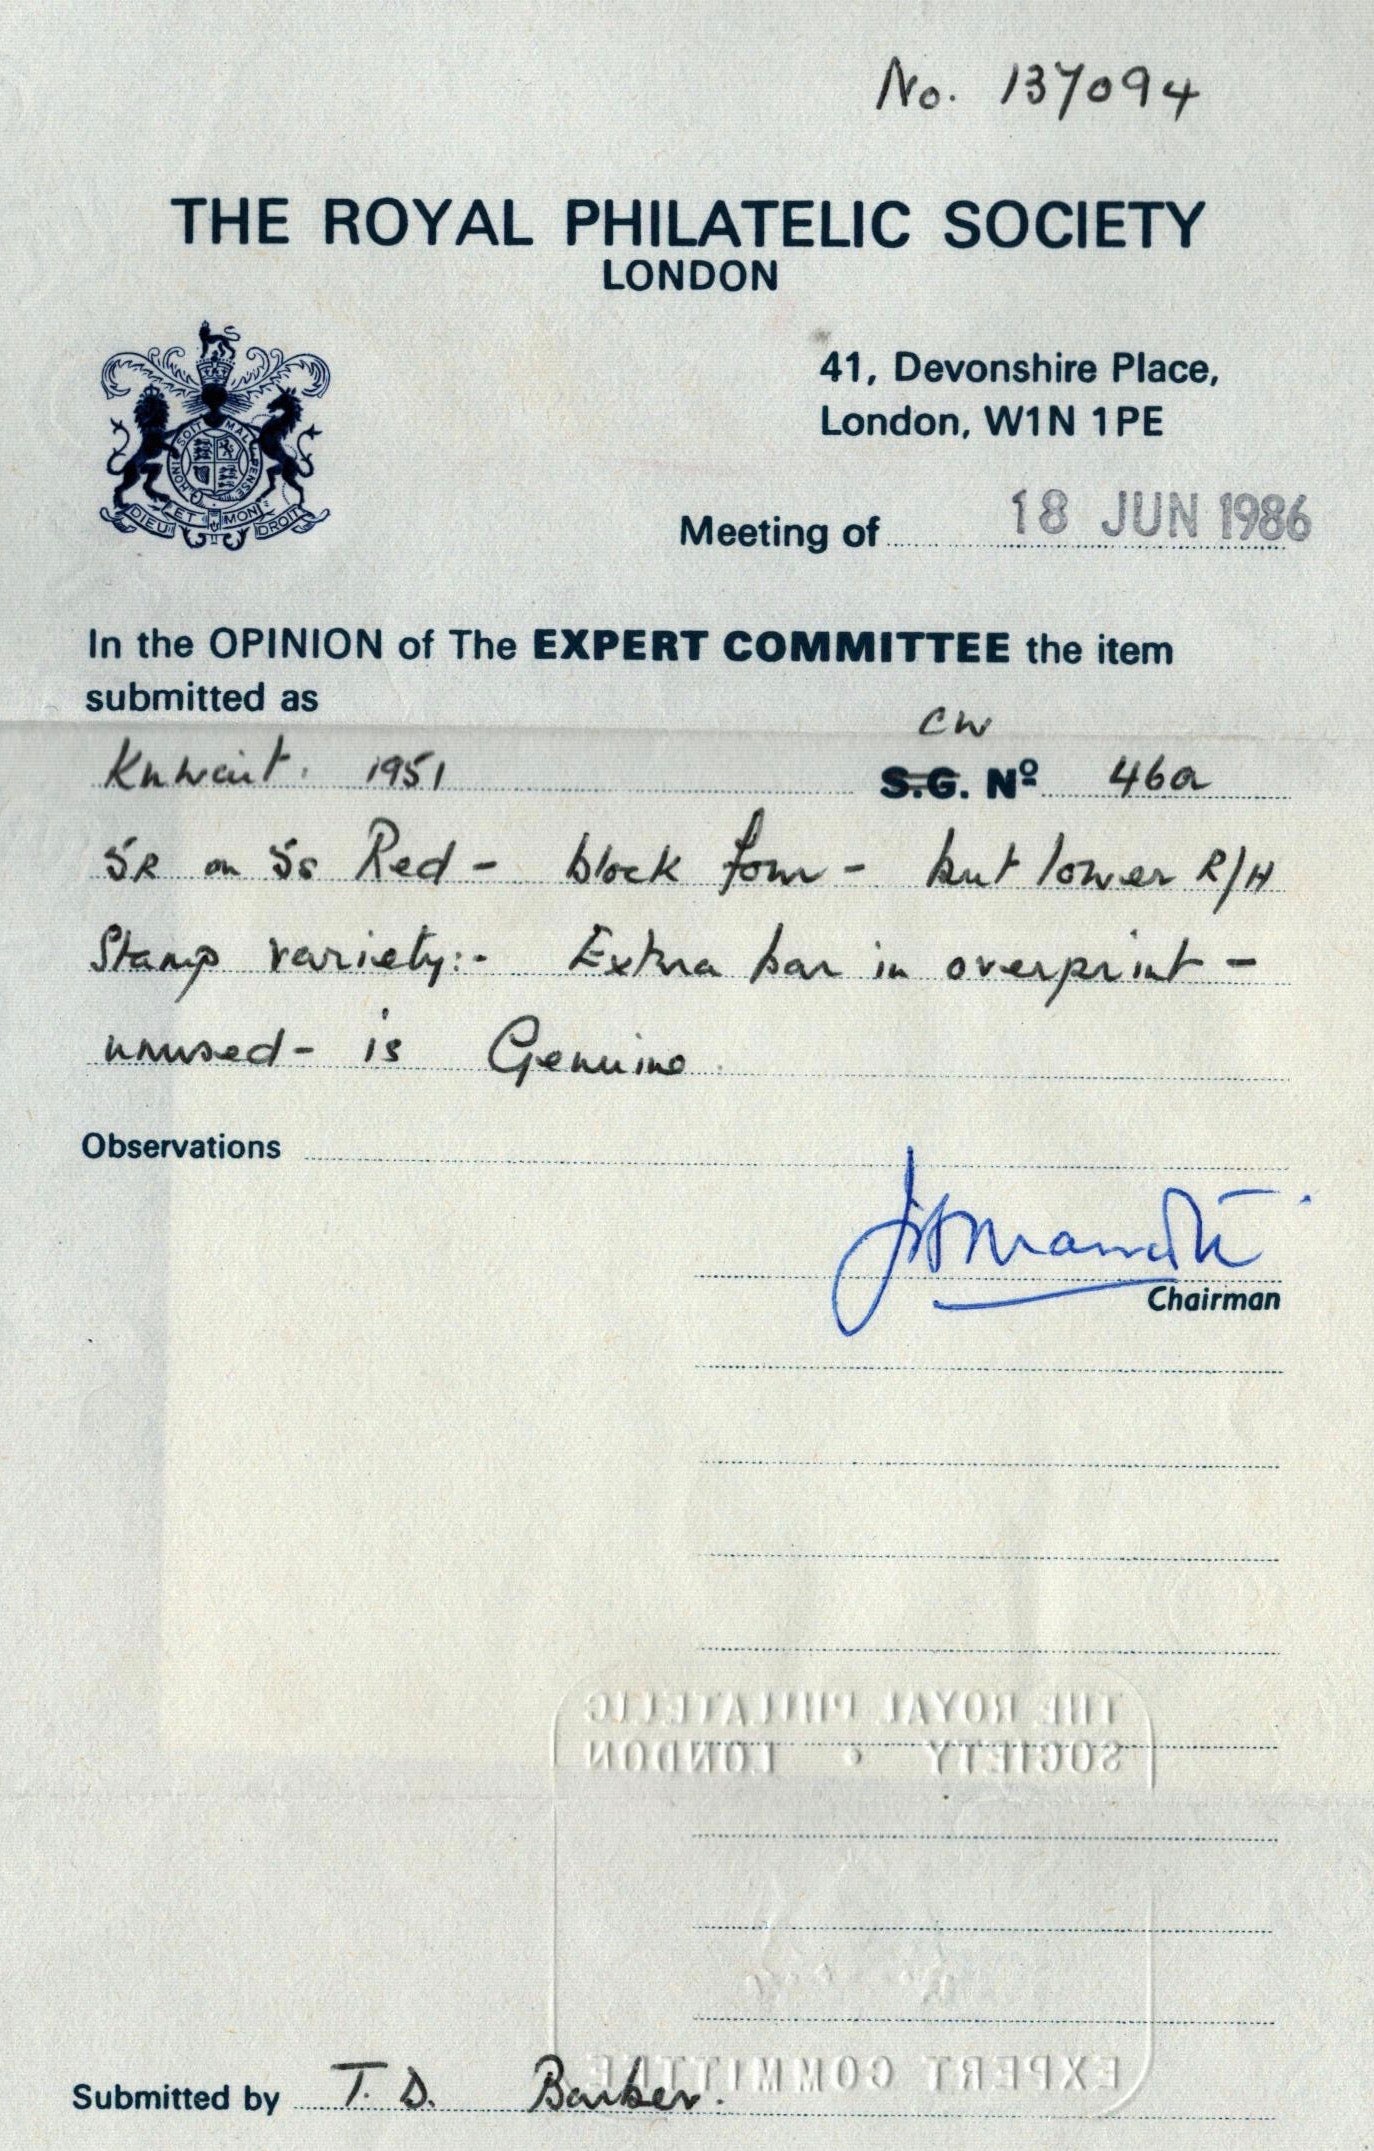 No. 137094
THE ROYAL PHILATELIC SOCIETY
LONDON
HONI SOIT MAL PENSE
DIEU ET MON DROIT
41, Devonshire Place,
London, W1N 1PE
Meeting of 18 JUN 1986
In the OPINION of The EXPERT COMMITTEE the item
submitted as
CW
Kuwait. 1951 S.G. Nº 46a
5R on 5s Red - block four - but lower R/H
Stamp variety:- Extra bar in overprint -
unused - is Genuine.
Observations
Chairman
THE ROYAL PHILATELIC
SOCIETY • LONDON
EXPERT COMMITTEE
Submitted by T. D. Barker.